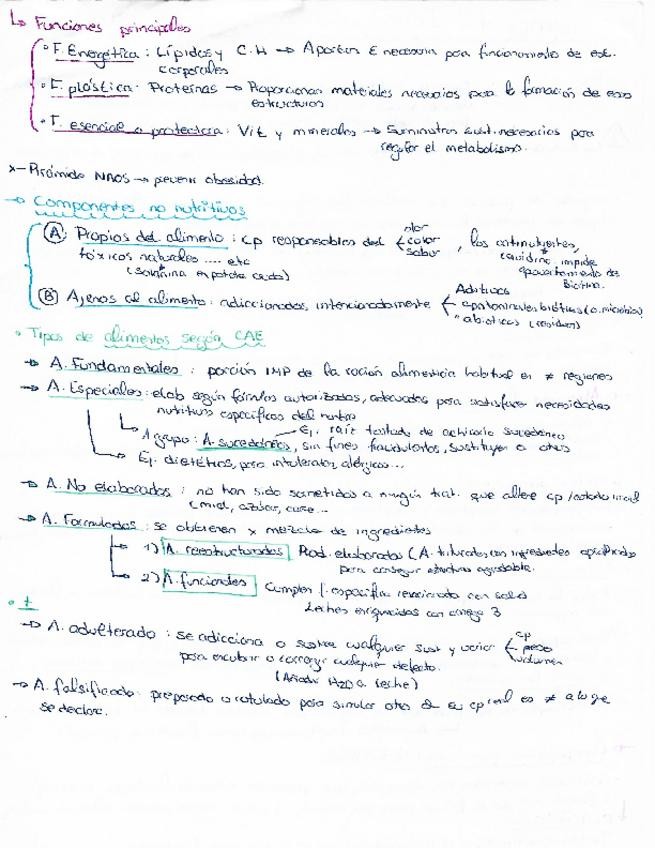 ↳ Funciones principales
• F. Energética: Lípidos y C.H → Aportan E necesaria para funcionamiento de est.
corporales
• F. plástica: Proteínas → Proporcionan materiales necesarios para la formación de esas
estructuras
• F. esencial o protectora: Vit y minerales → Suministran sust. necesarias para
regular el metabolismo.
x- Pirámide NAOS → prevenir obesidad.
→ Componentes no nutritivos
(A) Propios del alimento: cp responsables del < olor color sabor , los antinutrientes,
tóxicos naturales .... etc (avidina, impide
(solanina en patata cruda) aprovechamiento de
biotina.
(B) Ajenos al alimento: adiccionados, intencionadamente < Aditivos
contaminantes bióticos (o. microbio)
" abióticos (residuos)
• Tipos de alimentos según CAE
→ A. Fundamentales: porción IMP de la ración alimenticia habitual en ≠ regiones
→ A. Especiales: elab según fórmulas autorizadas, adecuadas para satisfacer necesidades
nutritivas específicas del
↳ A grupo: A. sucedáneos, sin fines fraudulentos, sustituyen a otros
Ej. raíz tostada de achicoria sucedáneo
↳ Ej. dietéticos, para intolerantes, alérgicos...
→ A. No elaborados: no han sido sometidos a ningún trat. que altere cp /estado inicial
(miel, azúcar, carne...
→ A. Formulados: se obtienen x mezcla de ingredientes
→ 1) A. reestructurados Prod. elaborados (A. triturados con ingredientes
para conseguir estructura agradable.
→ 2) A. funcionales Cumplen f. específica relacionada con salud
Leches enriquecidas con omega 3
• ±
→ A. adulterado: se adicciona o sustrae cualquier sust y variar < cp peso volumen
para encubrir o corregir cualquier defecto.
(Añadir H2O a leche)
→ A. falsificado: preparado o rotulado para simular otro & su cp real es ≠ a la que
se declara.